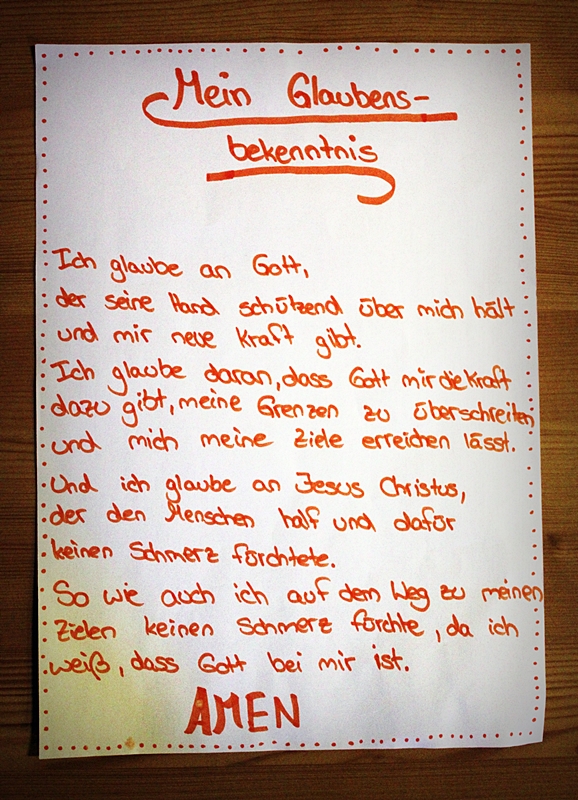 Mein Glaubens-
bekenntnis
Ich glaube an Gott,
der seine Hand schützend über mich hält
und mir neue Kraft gibt.
Ich glaube daran, dass Gott mir die Kraft
dazu gibt, meine Grenzen zu überschreiten
und mich meine Ziele erreichen lässt.
Und ich glaube an Jesus Christus,
der den Menschen half und dafür
keinen Schmerz fürchtete.
So wie auch ich auf dem Weg zu meinen
Zielen keinen Schmerz fürchte, da ich
weiß, dass Gott bei mir ist.
AMEN